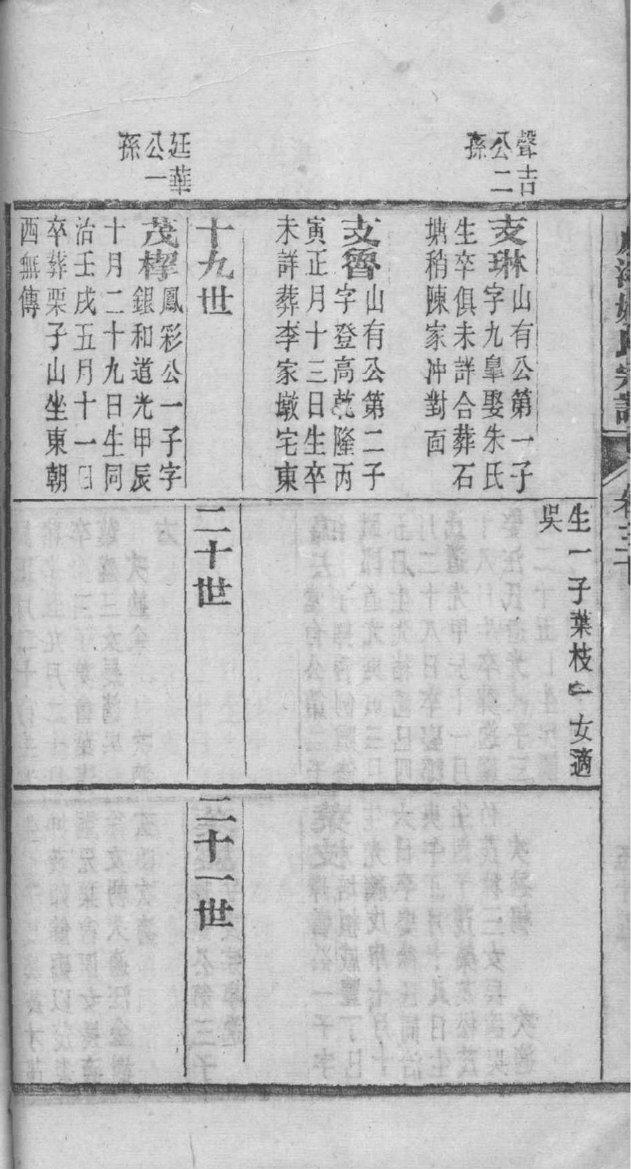 聲吉
公二
孫
廷華
公一
孫
支琳山有公第一子
字九臯娶朱氏
生卒俱未詳合葬石
塘稍陳家冲對面
支魯山有公第二子
字登高乾隆丙
寅正月十三日生卒
未詳葬李家墩宅東
十九世
茂樨鳳彩公一子字
銀和道光甲辰
十月二十九日生同
治壬戌五月十一日
卒葬栗子山坐東朝
西無傳
生一子葉枝一女適
吳
二十世
二十一世
氏宗譜
卷三十